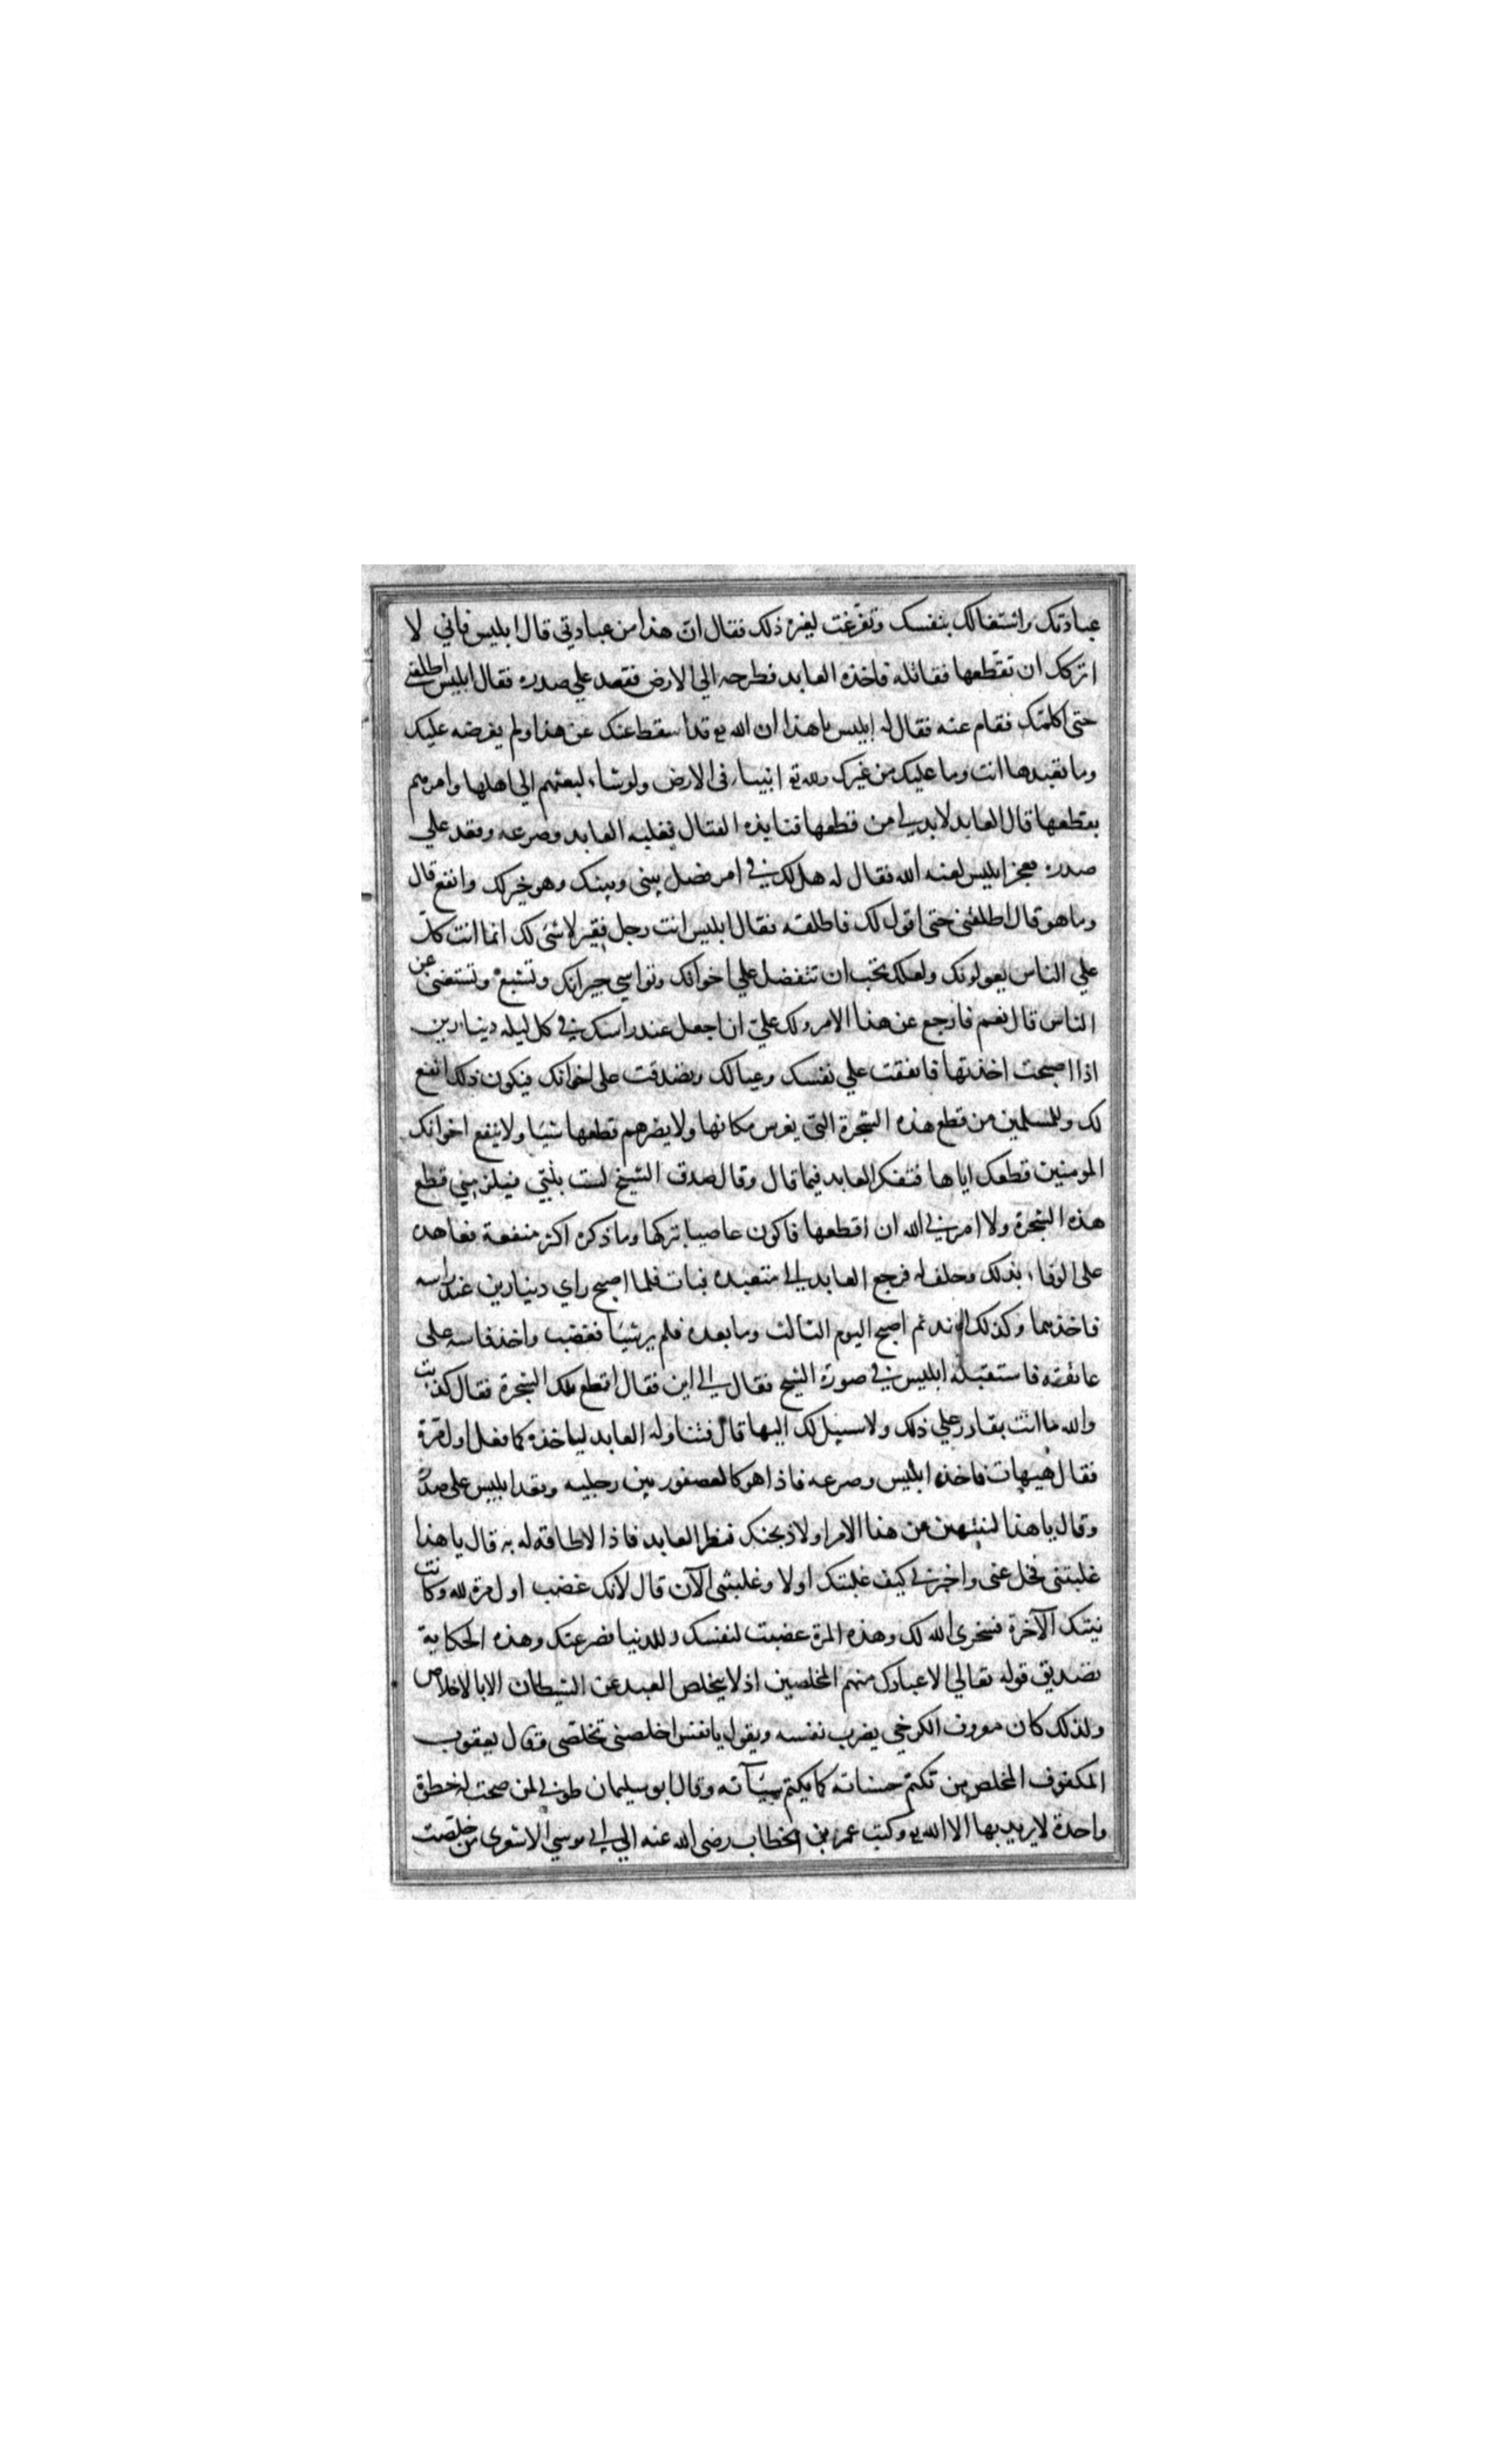 عبادتك واشتغالك بنفسك وتفرغت لغير ذلك فقال ان هذا من عبادتي قال ابليس فاني لا
اتركك ان تقطعها فقاتله فاخذه العابد فطرحه الي الارض فقعد علي صدره فقال ابليس اطلقني
حتى اكلمك فقام عنه فقال له ابليس يا هذا ان الله تع قد اسقط عنك عن هذا ولم يفرضه عليك
وما تعبدها انت وما عليك من غيرك ولله تع انبياء في الارض ولو شاء لبعثهم الي اهلها وامرهم
بقطعها قال العابد لا بد لي من قطعها فنابذه القتال فغلبه العابد وصرعه وقعد علي
صدره فعجز ابليس لعنه الله فقال له هل لك في امر فضل بيني وبينك وهو خير لك وانفع قال
وما هو قال اطلقني حتى اقول لك فاطلقه فقال ابليس انت رجل فقير لا شئ لك انما انت كلّ
علي الناس يعولونك ولعلك تحب ان تتفضل علي اخوانك وتواسي جيرانك وتشبع وتستغنى عن
الناس قال نعم فارجع عن هذا الامر ولك عليّ ان اجعل عند راسك في كل ليله دينارين
اذا اصبحت اخذتها فانفقت علي نفسك وعيالك وتصدقت على اخوانك فيكون ذلك انفع
لك وللمسلمين من قطع هذه الشجرة التي يغرس مكانها ولا يضرهم قطعها شيئا ولا ينفع اخوانك
المومنين قطعك اياها فتفكر العابد فيما قال وقال صدق الشيخ لست بنبي فيلزمني قطع
هذه الشجرة ولا امرني الله ان اقطعها فاكون عاصيا بتركها وما ذكره اكثر منفعة فعاهده
على الوفاء بذلك وحلف له فرجع العابد الي متعبده فبات فلما اصبح راي دينارين عند راسه
فاخذهما وكذلك الغد ثم اصبح اليوم الثالث وما بعده فلم ير شيئا فغضب واخذ فاسه على
عاتقه فاستقبله ابليس في صورة الشيخ فقال الي اين فقال اقطع تلك الشجرة فقال كذبت
والله ما انت بقادر علي ذلك ولا سبيل لك اليها قال فتناوله العابد لياخذه كما فعل اول مرة
فقال هيهات فاخذه ابليس وصرعه فاذا هو كالعصفور بين رجليه وقعد ابليس على صدره
وقال يا هذا لتنتهين من هذا الامر او لاذبحنك فنظر العابد فاذا لا طاقة له به قال يا هذا
غلبتني فخل عني واخبرني كيف غلبتك اولا وغلبتني الآن قال لانك غضبت اول مرة لله وكانت
نيتك الآخرة فسخرني الله لك وهذه المرة غضبت لنفسك وللدنيا فصرعتك وهذه الحكاية
تصديق قوله تعالي الا عبادك منهم المخلصين اذ لا يتخلص العبد عن الشيطان الا بالاخلاص
ولذلك كان معروف الكرخي يضرب نفسه ويقول يا نفس اخلصى تخلصى وقال يعقوب
المكفوف المخلص من تكتم حسناته كما يكتم سيآته وقال ابو سليمان طوبي لمن صحت له خطوة
واحدة لا يريد بها الا الله تع وكتب عمر بن الخطاب رضى الله عنه الي ابي موسي الاشعرى من خلصت